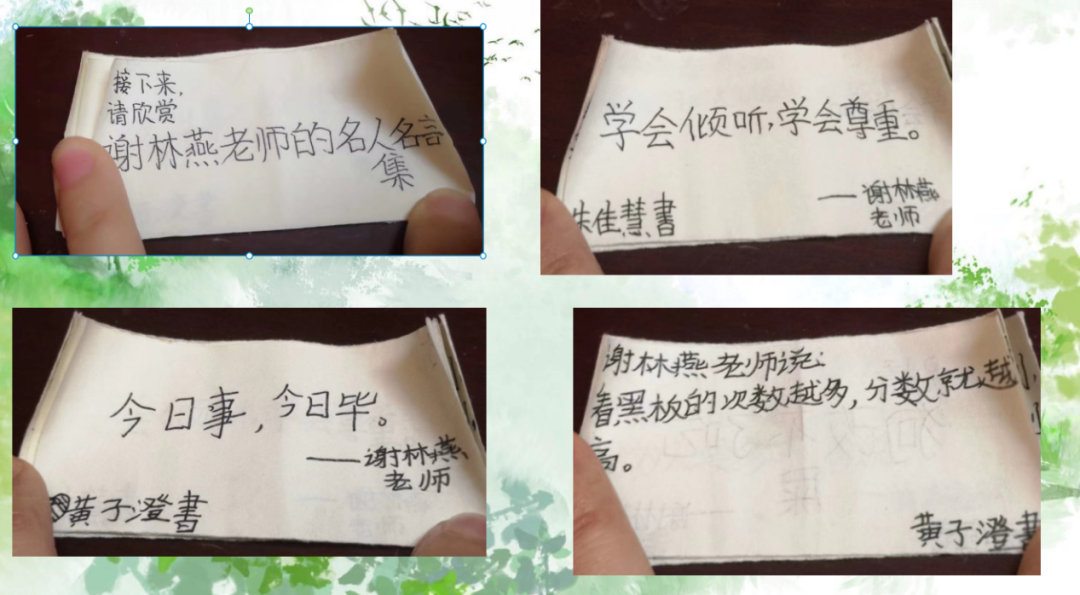 接下来，
请欣赏
谢林燕老师的名人名言
集
学会倾听，学会尊重。
——谢林燕
老师
朱佳慧書
今日事，今日毕。
——谢林燕
老师
黄子澄書
谢林燕老师说：
看黑板的次数越多，分数就越
高。
黄子澄書